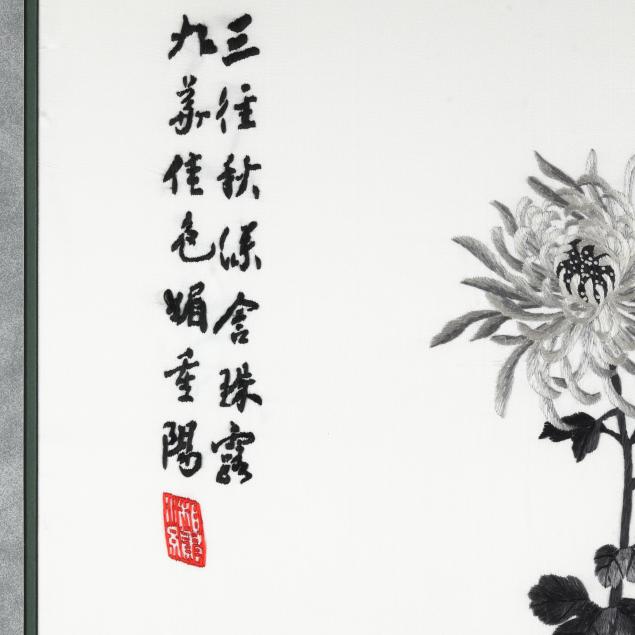 三径秋深含珠露
九華佳色媚重陽